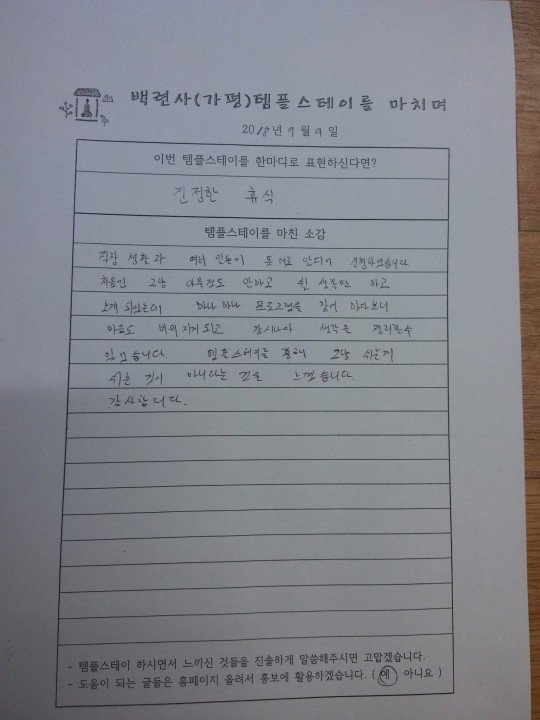 백련사(가평)템플스테이를 마치며
2018년 9월 9일
이번 템플스테이를 한마디로 표현하신다면?
진정한 휴식
템플스테이를 마친 소감
직장 생활과 여러 인연이 뜻대로 안되어 신청하였습니다
처음엔 그냥 아무것도 안하고 쉴 생각만 하고
오게 되었는데 하나 하나 프로그램을 참여 하다보니
마음도 비워지게되고 잠시나마 생각을 정리할수
있었습니다 템플스테이를 통해 그냥 쉬는게
쉬는 것이 아니다는 것을 느꼈습니다.
감사합니다.
- 템플스테이 하시면서 느끼신 것들을 진솔하게 말씀해주시면 고맙겠습니다.
- 도움이 되는 글들은 홈페이지 올려서 홍보에 활용하겠습니다. ( 예 아니요 )